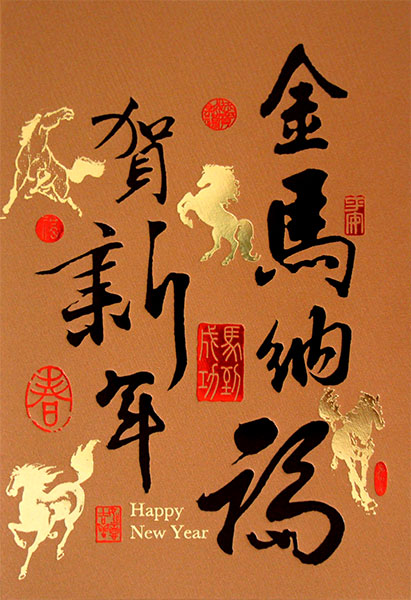 金馬納福
賀新年
馬到
成功
平安
福
春
Happy
New Year